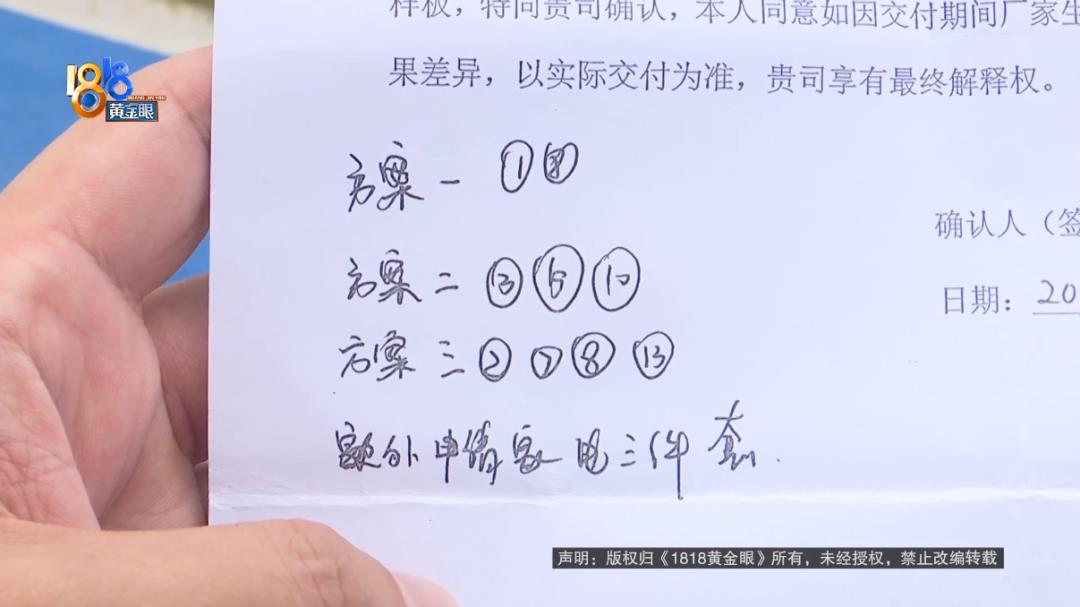 样板，特向贵司确认，本人同意如因交付期间厂家生
果差异，以实际交付为准，贵司享有最终解释权。
1818
黄金眼
方案一 ①
确认人（签
方案二 ⑥ ⑩
日期：20
方案三 ② ⑦ ⑧ ⑬
额外申请家电三件套.
声明：版权归《1818黄金眼》所有，未经授权，禁止改编转载